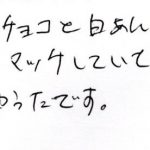 チョコと白あん
マッチしていて
ゆうたです。